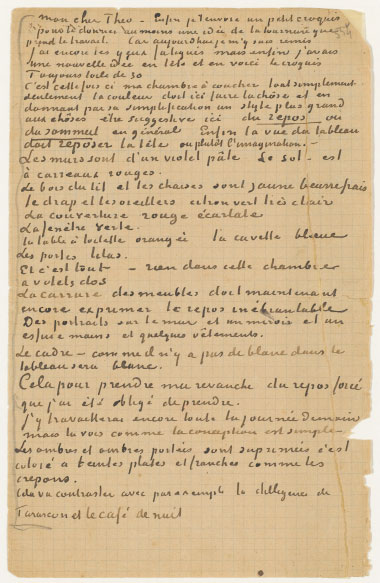 mon cher Theo – Enfin je t'envoie un petit croquis
pour te donner au moins une idée de la tournure que
prend le travail. Car aujourd'hui je m'y suis remis
J'ai encore les yeux fatigués mais enfin j'avais
une nouvelle idée en tête et en voici le croquis
Toujours toile de 30
C'est cette fois ci ma chambre à coucher tout simplement
seulement la couleur doit ici faire la chose et en
donnant par sa simplification un style plus grand
aux choses être suggestive ici du repos ou
du sommeil en général Enfin la vue du tableau
doit reposer la tête ou plutôt l'imagination. –
Les murs sont d'un violet pâle Le sol – est
à carreaux rouges.
Le bois du lit et les chaises sont jaune beurre frais
le drap et les oreillers citron vert très clair
La couverture rouge écarlate
La fenêtre verte.
la table à toilette orangée la cuvette bleue
Les portes lilas.
Et c'est tout – rien dans cette chambre
à volets clos
La carrure des meubles doit maintenant
encore exprimer le repos inébranlable
Des portraits sur le mur et un miroir et un
essuie mains et quelques vêtements.
Le cadre – comme il n'y a pas de blanc dans le
tableau sera blanc.
Cela pour prendre ma revanche du repos forcé
que j'ai été obligé de prendre.
J'y travaillerai encore toute la journée demain
mais tu vois comme la conception est simple –
Les ombres et ombres portées sont suprimées c'est
coloré à teintes plates et franches comme les
crepons.
Cela va contraster avec par exemple la diligence de
Tarascon et le café de nuit